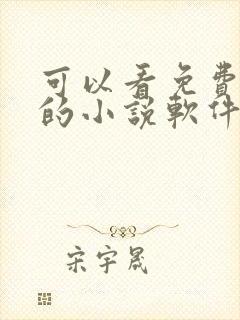 可以看免費
的小說軟件
宋宇晟